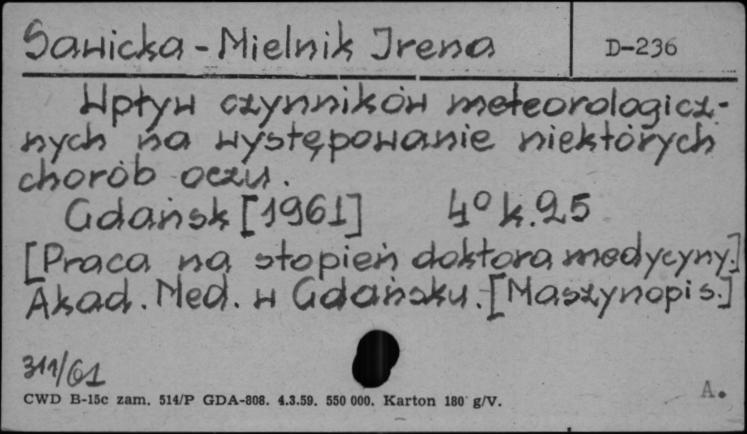 Sawicka-Mielnik Irena D-236
Wpływ czynników meteorologicz-
nych na występowanie niektórych
chorób oczu.
Gdańsk [1961] 4° k.25
[Praca na stopień doktora medycyny.]
Akad. Med. w Gdańsku. [Maszynopis.]
311/61
A.
CWD B-15c zam. 514/P GDA-808. 4.3.59. 550 000. Karton 180 g/V.